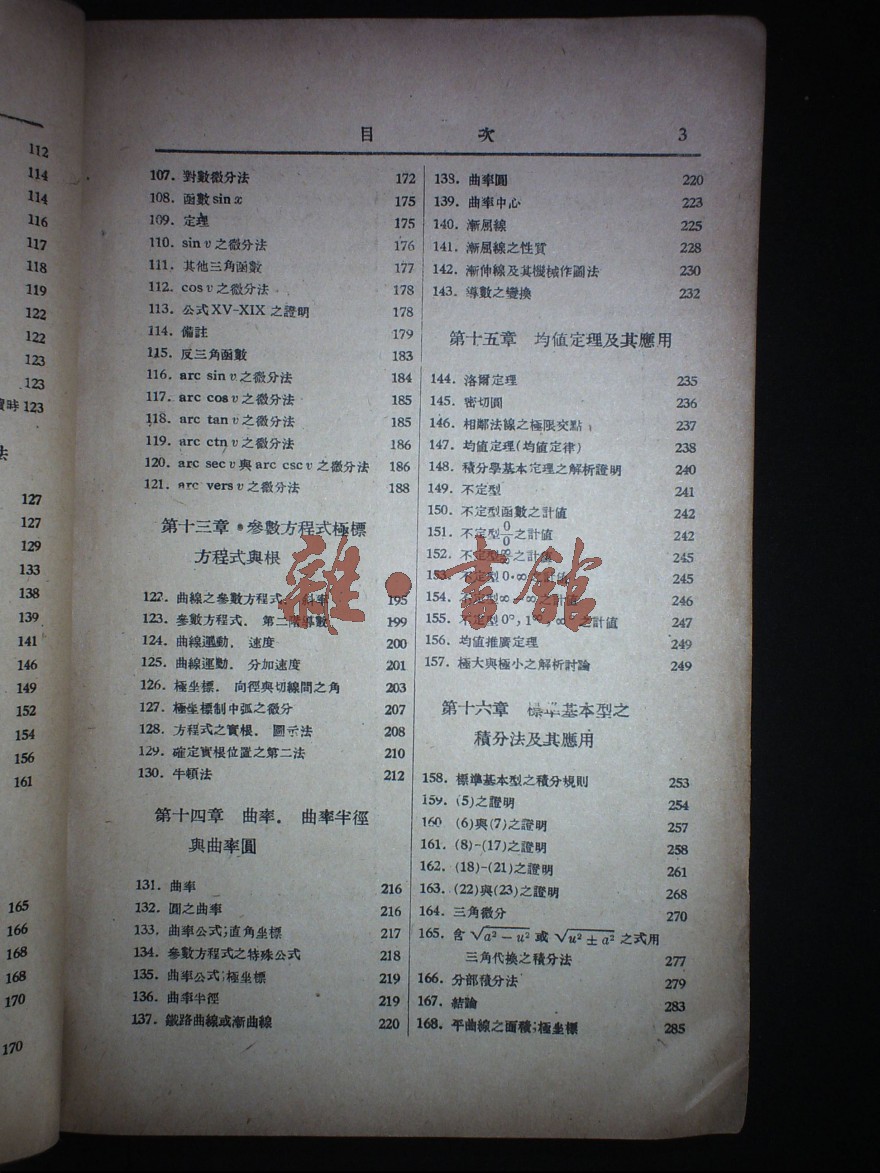 112
114
114
116
117
118
119
122
122
123
123
123
127
127
129
133
138
139
141
146
149
152
154
156
161
165
166
168
168
170
170
目 次 3
107. 對數微分法 172
108. 函數 sin x 175
109. 定理 175
110. sin v 之微分法 176
111. 其他三角函數 177
112. cos v 之微分法 178
113. 公式 XV-XIX 之證明 178
114. 備註 179
115. 反三角函數 183
116. arc sin v 之微分法 184
117. arc cos v 之微分法 185
118. arc tan v 之微分法 185
119. arc ctn v 之微分法 186
120. arc sec v 與 arc csc v 之微分法 186
121. arc vers v 之微分法 188
第十三章 參數方程式極標
方程式與根
122. 曲線之參數方程式. 斜率 195
123. 參數方程式. 第二階導數 199
124. 曲線運動. 速度 200
125. 曲線運動. 分加速度 201
126. 極坐標. 向徑與切線間之角 203
127. 極坐標制中弧之微分 207
128. 方程式之實根. 圖示法 208
129. 確定實根位置之第二法 210
130. 牛頓法 212
第十四章 曲率. 曲率半徑
與曲率圓
131. 曲率 216
132. 圓之曲率 216
133. 曲率公式;直角坐標 217
134. 參數方程式之特殊公式 218
135. 曲率公式;極坐標 219
136. 曲率半徑 219
137. 鐵路曲線或漸曲線 220
138. 曲率圓 220
139. 曲率中心 223
140. 漸屈線 225
141. 漸屈線之性質 228
142. 漸伸線及其機械作圖法 230
143. 導數之變換 232
第十五章 均值定理及其應用
144. 洛爾定理 235
145. 密切圓 236
146. 相鄰法線之極限交點 237
147. 均值定理(均值定律) 238
148. 積分學基本定理之解析證明 240
149. 不定型 241
150. 不定型函數之計值 242
151. 不定型 0/0 之計值 242
152. 不定型 ∞/∞ 之計值 245
153. 不定型 0·∞ 之計值 245
154. 不定型 ∞-∞ 之計值 246
155. 不定型 0⁰, 1^∞, ∞⁰ 之計值 247
156. 均值推廣定理 249
157. 極大與極小之解析討論 249
第十六章 標準基本型之
積分法及其應用
158. 標準基本型之積分規則 253
159. (5)之證明 254
160 (6)與(7)之證明 257
161. (8)-(17)之證明 258
162. (18)-(21)之證明 261
163. (22)與(23)之證明 268
164. 三角微分 270
165. 含 √(a² − u²) 或 √(u² ± a²) 之式用
三角代換之積分法 277
166. 分部積分法 279
167. 結論 283
168. 平曲線之面積;極坐標 285
雜·書館